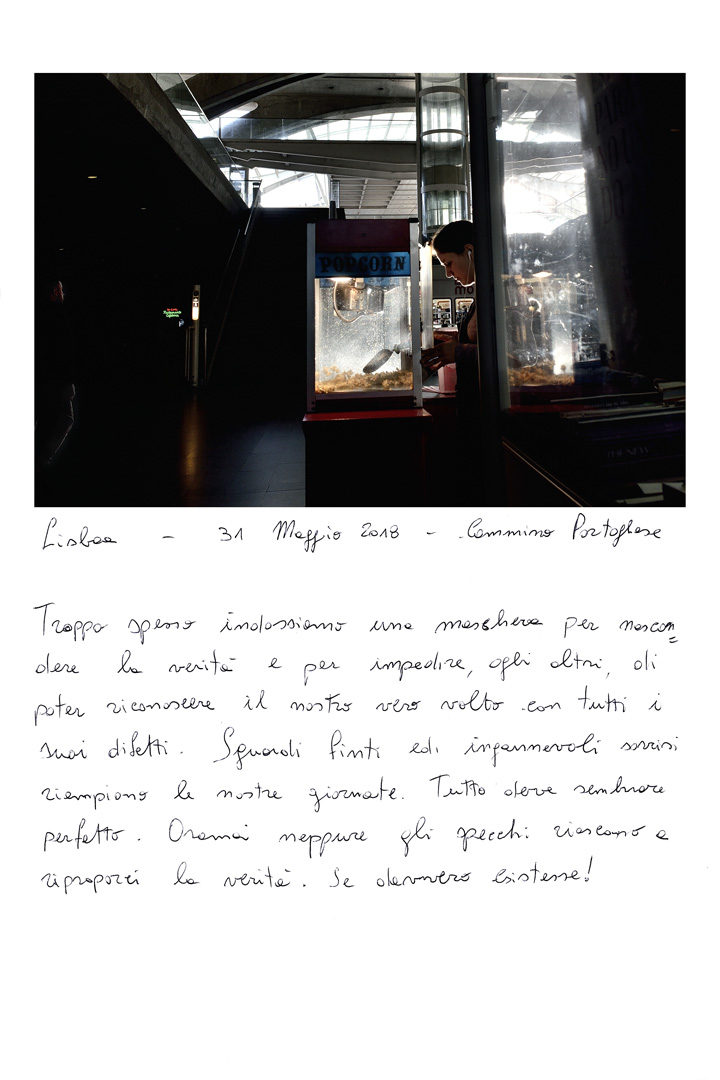 POPCORN
Lisboa - 31 Maggio 2018 - Cammino Portoghese
Troppo spesso indossiamo una maschera per nascon=
dere la verità e per impedire, agli altri, di
poter riconoscere il nostro vero volto con tutti i
suoi difetti. Sguardi finti ed ingannevoli sorrisi
riempiono le nostre giornate. Tutto deve sembrare
perfetto. Oramai neppure gli specchi riescono a
riproporci la verità. Se davvero esistesse!